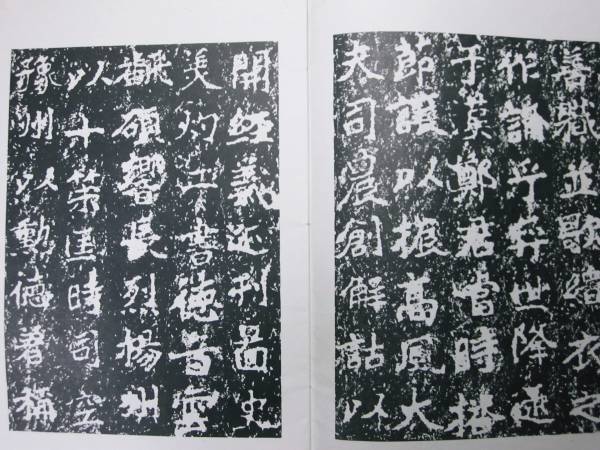 善職並歌緇衣之
作誦乎弈世降逮
于漢鄭君當時播
節讓以振高風大
夫司農創解詁以
開經義迹刊啚史
美灼二書德音雲
飜碩響長烈楊州
以十策匡時司空
豫州以勳德著稱